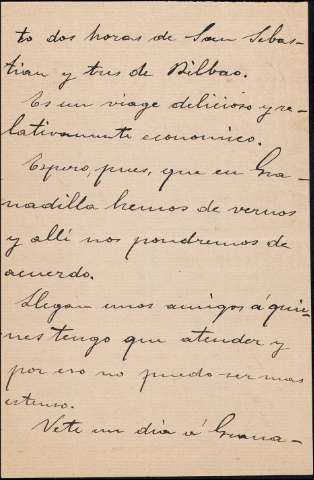 to dos horas de San Sebas-
tian y tres de Bilbao.
Es un viage delicioso y re-
lativamente economico.
Espero, pues, que en Gra-
nadilla hemos de vernos
y allí nos pondremos de
acuerdo.
Llegan unos amigos á quie-
nes tengo que atender y
por eso no puedo ser mas
estenso.
Vete un dia á Grana-